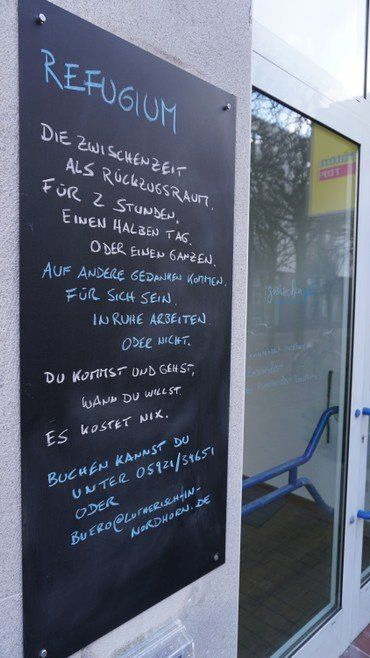 REFUGIUM
DIE ZWISCHENZEIT
ALS RÜCKZUGSRAUM.
FÜR 2 STUNDEN,
EINEN HALBEN TAG.
ODER EINEN GANZEN.
AUF ANDERE GEDANKEN KOMMEN.
FÜR SICH SEIN.
IN RUHE ARBEITEN.
ODER NICHT.
DU KOMMST UND GEHST,
WANN DU WILLST.
ES KOSTET NIX.
BUCHEN KANNST DU
UNTER 05921/34651
ODER
BUERO@LUTHERISCH-IN-
NORDHORN.DE
FDP